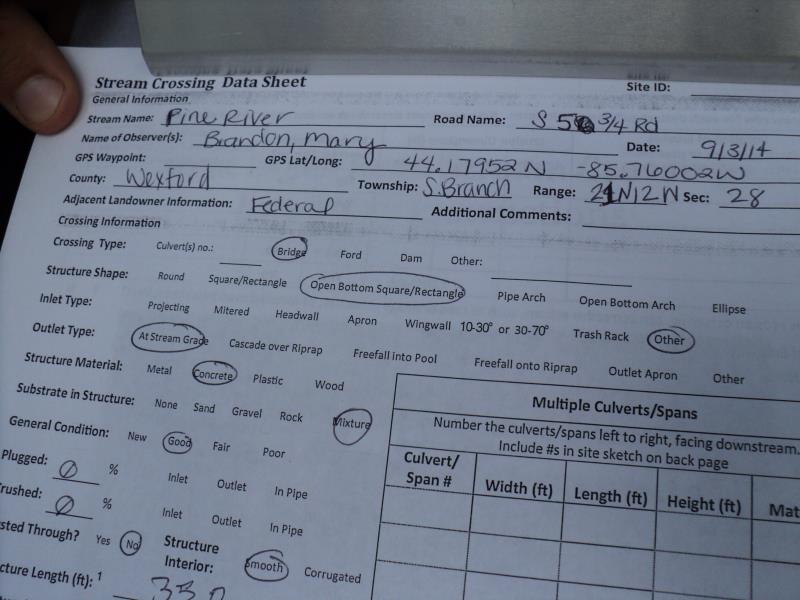 Stream Crossing Data Sheet
Site ID:
General Information
Stream Name: Pine River Road Name: S 5 3/4 Rd
Name of Observer(s): Brandon, Mary Date: 9/3/14
GPS Waypoint: GPS Lat/Long: 44.17952 N -85.76002 W
County: Wexford Township: S. Branch Range: 21N12W Sec: 28
Adjacent Landowner Information: Federal Additional Comments:
Crossing Information
Crossing Type: Culvert(s) no.: Bridge Ford Dam Other:
Structure Shape: Round Square/Rectangle Open Bottom Square/Rectangle Pipe Arch Open Bottom Arch Ellipse
Inlet Type: Projecting Mitered Headwall Apron Wingwall 10-30° or 30-70° Trash Rack Other
Outlet Type: At Stream Grade Cascade over Riprap Freefall into Pool Freefall onto Riprap Outlet Apron Other
Structure Material: Metal Concrete Plastic Wood
Substrate in Structure: None Sand Gravel Rock Mixture
General Condition: New Good Fair Poor
Plugged: 0 % Inlet Outlet In Pipe
rushed: 0 % Inlet Outlet In Pipe
sted Through? Yes No Structure Interior: Smooth Corrugated
cture Length (ft): 1 33.0
Multiple Culverts/Spans
Number the culverts/spans left to right, facing downstream.
Include #s in site sketch on back page
Culvert/ Span # Width (ft) Length (ft) Height (ft) Mat